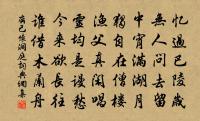 憶過巴陵歲
無人問去留
中宵滿湖月
獨自在僧樓
漁父真閒唱
靈均是謾愁
今來欲長往
誰借木蘭舟
齊己懷洞庭詞典網集